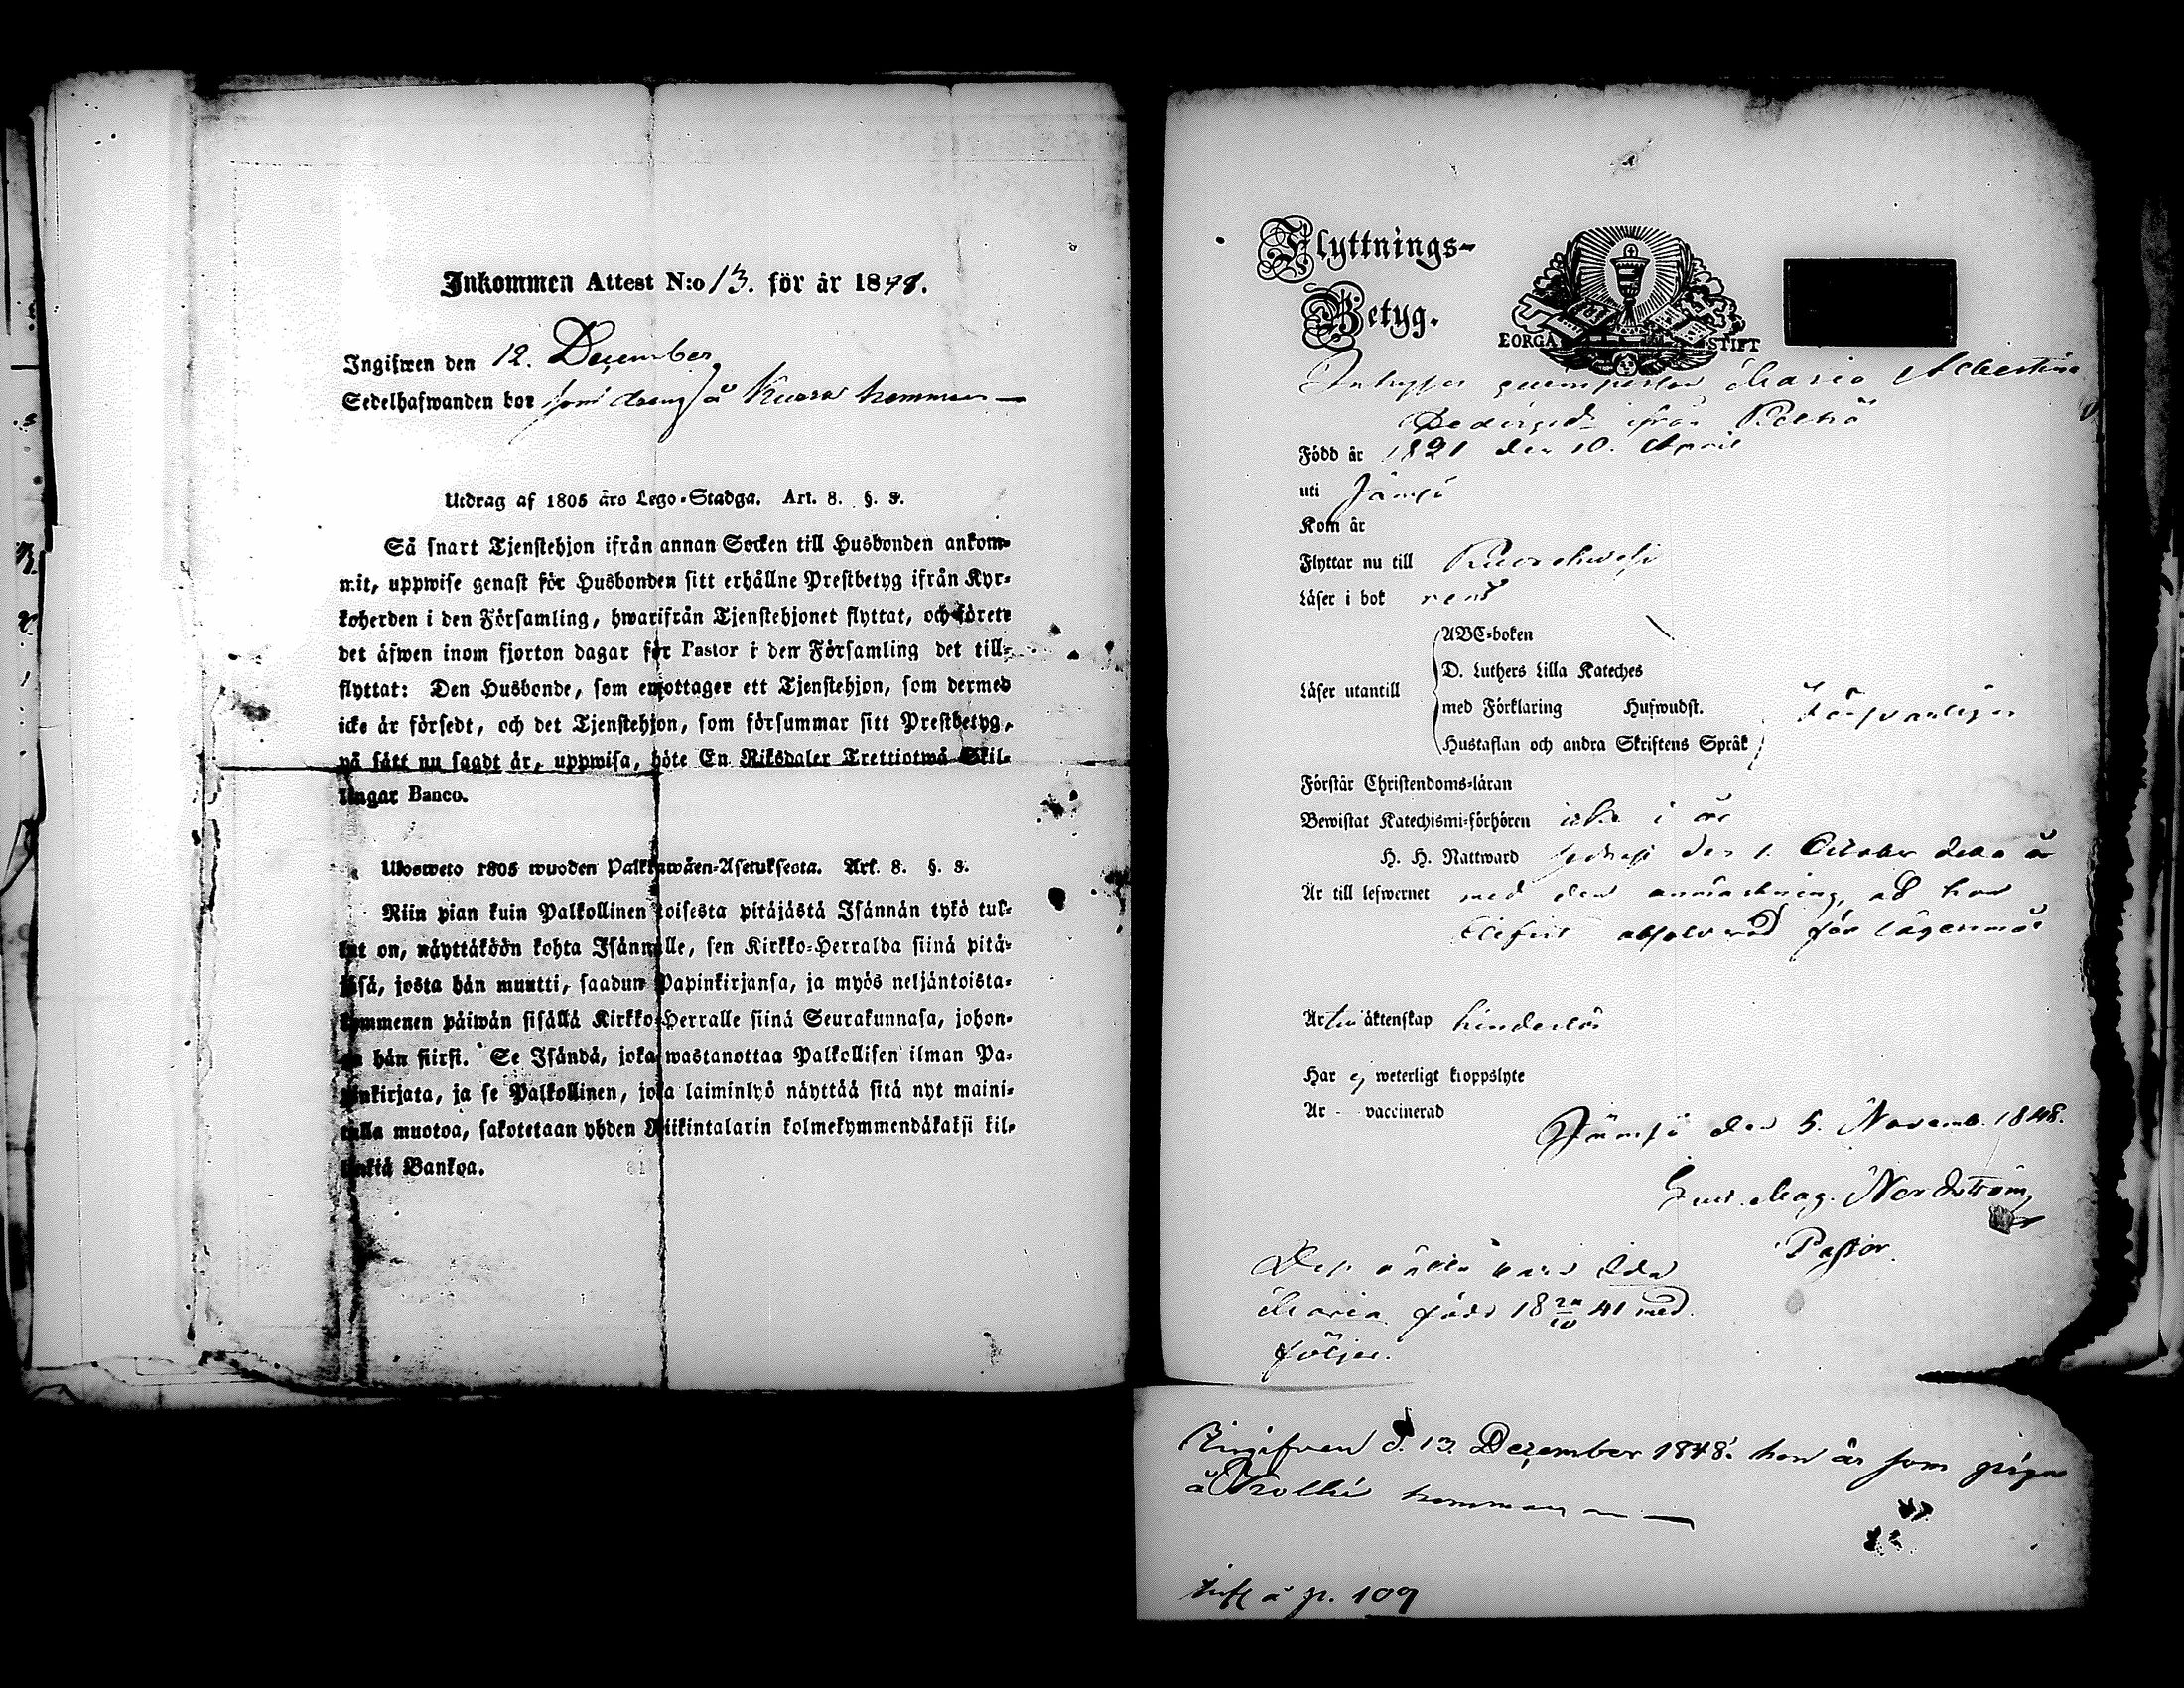 Inkommen Attest N:o 13. för år 1848.
Ingifwen den 12. December
Sedelhafwanden bor som dreng å hemman
Utdrag af 1805 års Lego-Stadga. Art. 8. §. 8.
Så snart Tjenstehjon ifrån annan Socken till Husbonden ankom-
mit, uppwise genast för Husbonden sitt erhållne Prestbetyg ifrån Kyr-
koherden i den Församling, hwarifrån Tjenstehjonet flyttat, och förete
det äfwen inom fjorton dagar för Pastor i den Församling det till-
flyttat: Den Husbonde, som emottager ett Tjenstehjon, som dermed
icke är försedt, och det Tjenstehjon, som försummar sitt Prestbetyg,
på sätt nu sagdt är, uppwisa, böte En Riksdaler Trettiotwå Skil-
lingar Banco.
Ulosweto 1805 wuoden Palkkawäen-Asetuksesta. Art. 8. §. 8.
Niin pian kuin Palkollinen toisesta pitäjästä Isännän tykö tul-
lut on, näyttäköön kohta Isännälle, sen Kirkko-Herralda siinä pitä-
jäsä, josta hän muutti, saadun Papinkirjansa, ja myös neljäntoista-
kymmenen päiwän sisällä Kirkko-Herralle siinä Seurakunnasa, johon-
ga hän siirsi. Se Isändä, joka wastanottaa Palkollisen ilman Pa-
pinkirjata, ja se Palkollinen, joka laiminlyö näyttää sitä nyt maini-
tulla muotoa, sakotetaan yhden Riikintalarin kolmekymmendäkaksi kil-
linkiä Bankoa.
Flyttnings-
Betyg.
BORGÅ STIFT
Maria Albertina
ifrån
Född år 1821 den 10. April
uti Jämsä
Kom år
Flyttar nu till Ruovehwesi
Läser i bok rent
Läser utantill
ABC-boken
D. Luthers Lilla Kateches
med Förklaring Hufwudst.
Hustaflan och andra Skriftens Språk
Förswarligen
Förstår Christendoms-läran
Bewistat Katechismi-förhören icke i år
H. H. Nattward sednast den 1. October detta år
Är till lefwernet med den anmärkning, att hon
blifvit absolverad för lägersmål
Är till äktenskap hinderlös
Har ej weterligt kroppslyte
Är - vaccinerad
Jämsä den 5. Novemb. 1848.
Gust. Mag. Nordström
Pastor.
Dess oäkta barn Ida
Maria född 18 20/10 41 med
följer.
Ingifven d. 13. December 1848. hon är som piga
å hemman
inf. å p. 109